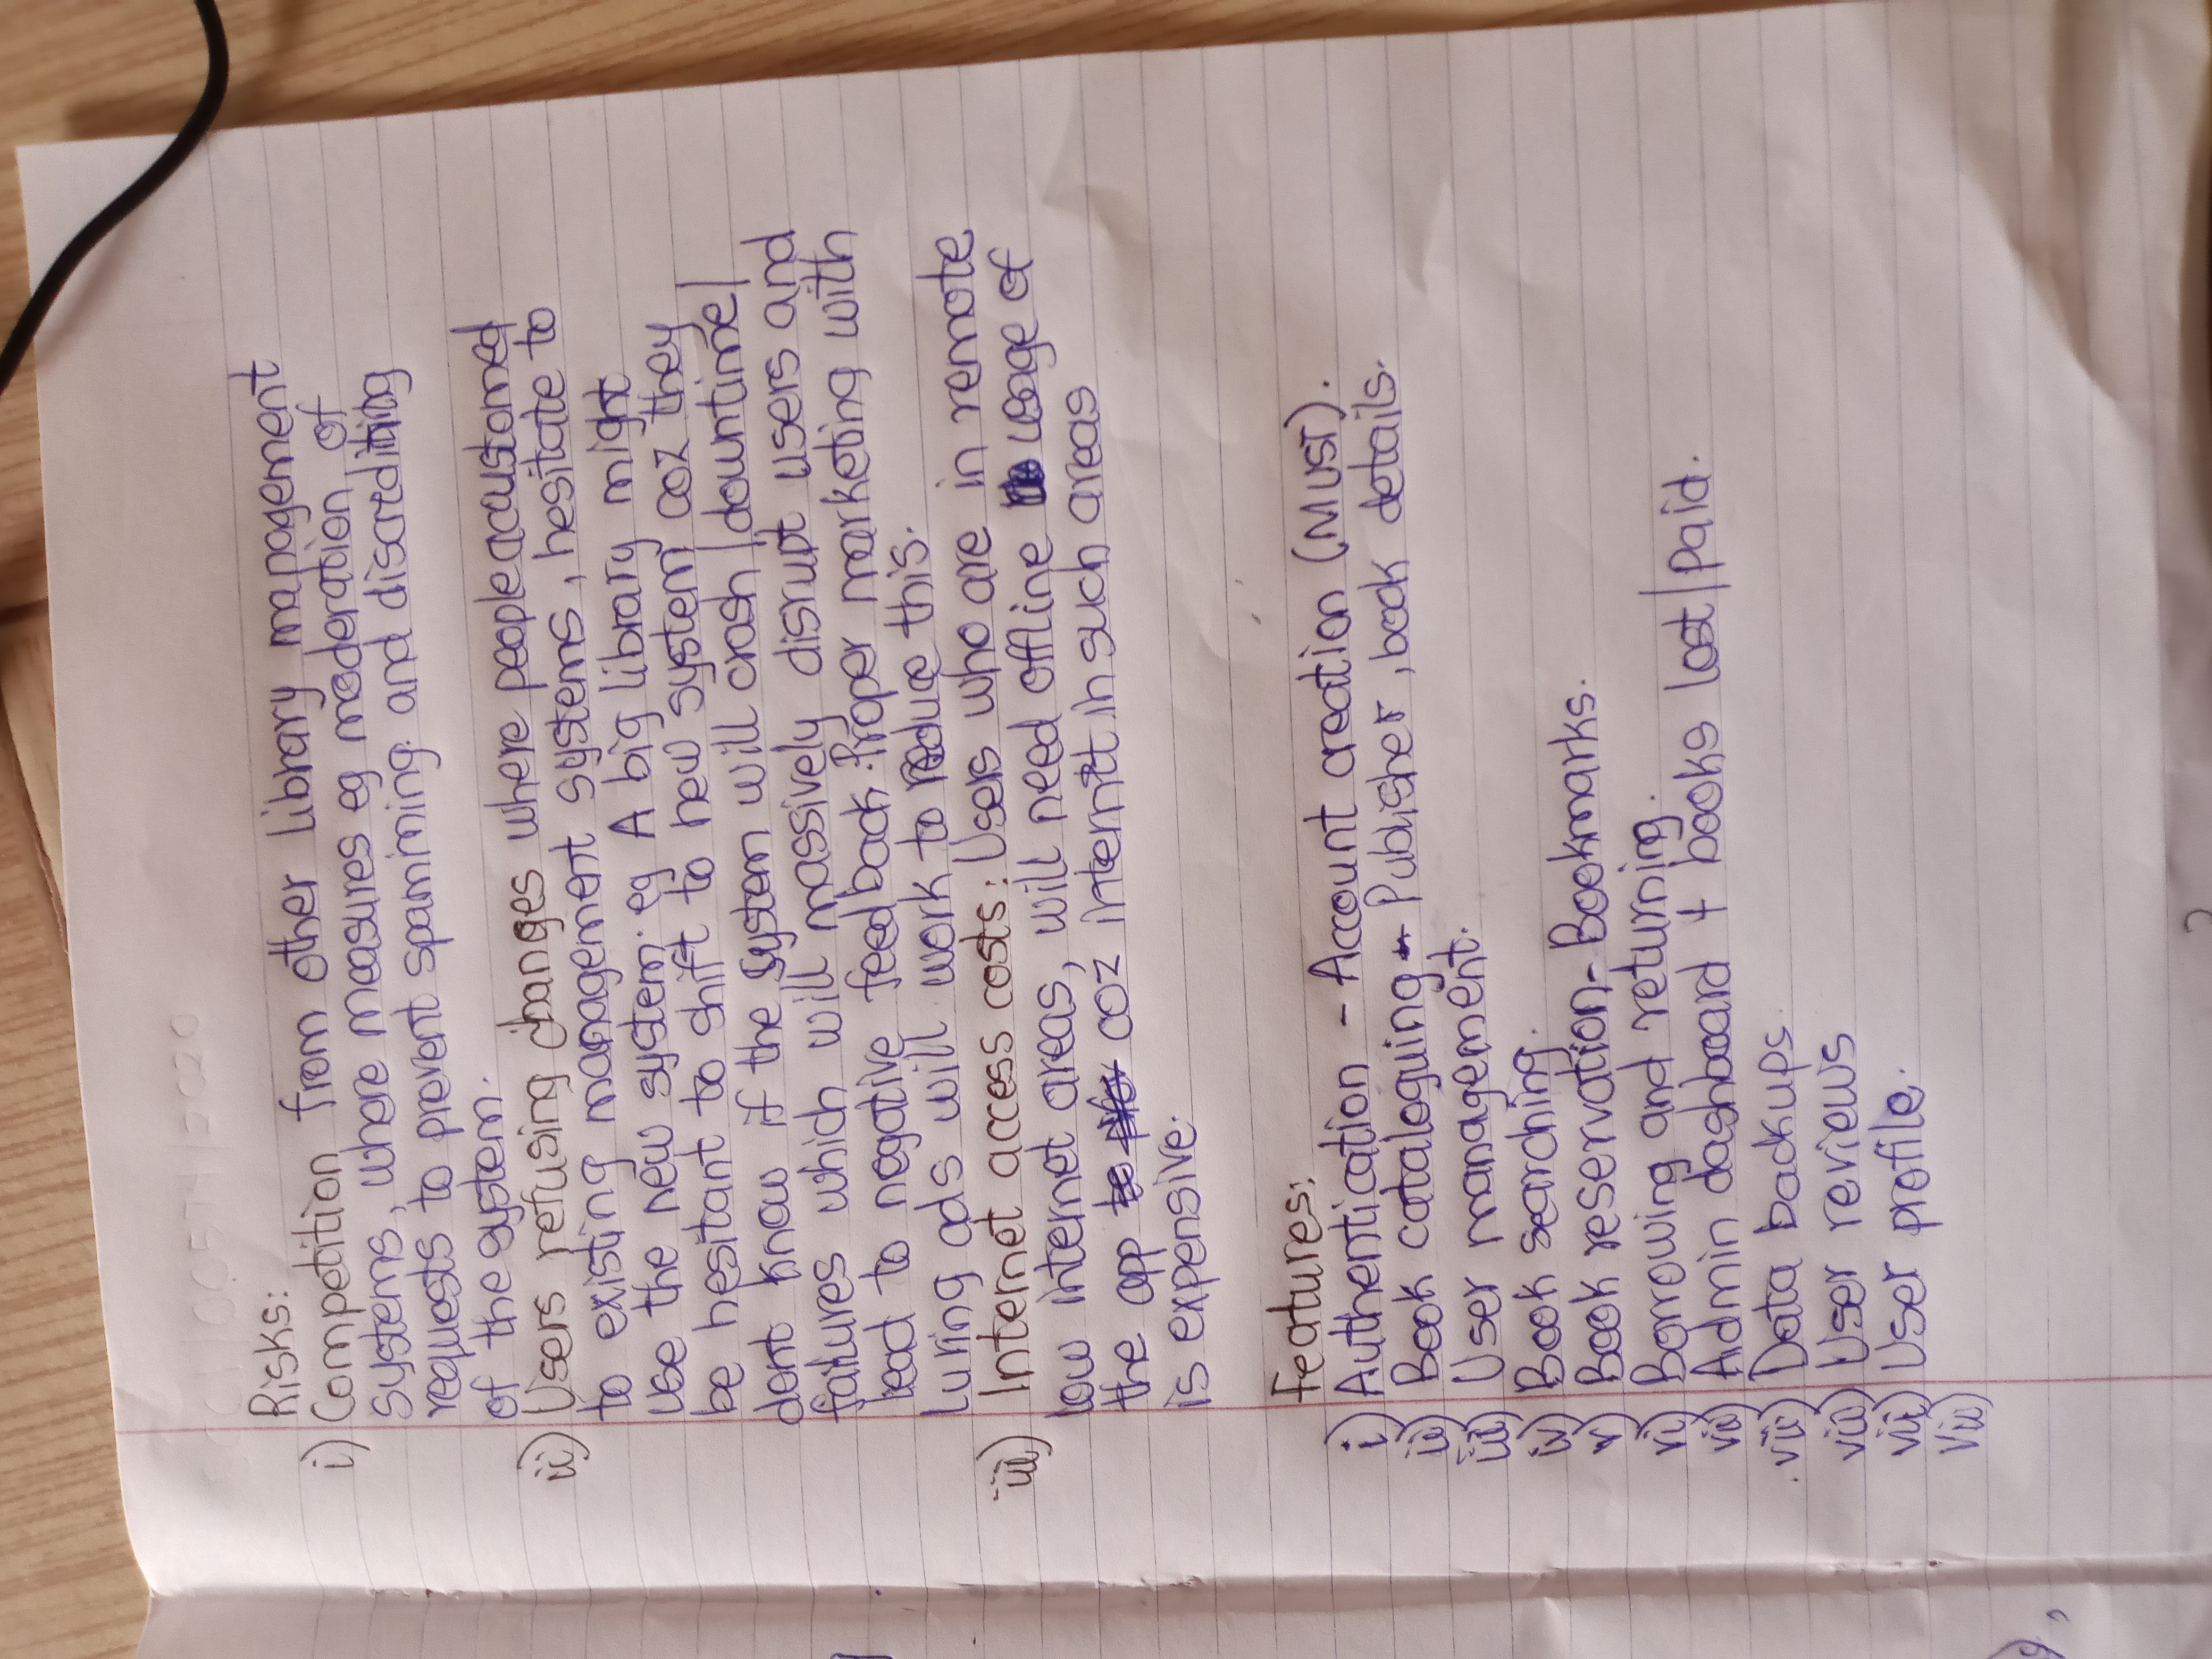 Risks:
i) Competition from other library management
systems, where measures eg moderation of
requests to prevent spamming and discrediting
of the system.
ii) Users refusing changes where people acustomed
to existing management systems, hesitate to
use the new system. eg A big library might
be hesitant to shift to new system coz they
dont know if the system will crash | downtime |
failures which will massively disrupt users and
lead to negative feedback. Proper marketing with
luring ads will work to reduce this.
iii) Internet access costs: Users who are in remote
low internet areas, will need offline usage of
the app coz internt in such areas
is expensive.
Features:
i) Authentication - Account creation (MUST).
ii) Book cataloguing - Publisher, book details.
iii) User management.
iv) Book searching.
v) Book reservation - Bookmarks.
vi) Borrowing and returning.
vii) Admin dashboard + books lost | paid.
viii) Data backups.
viii) User reviews
vii) User profile.
viii)